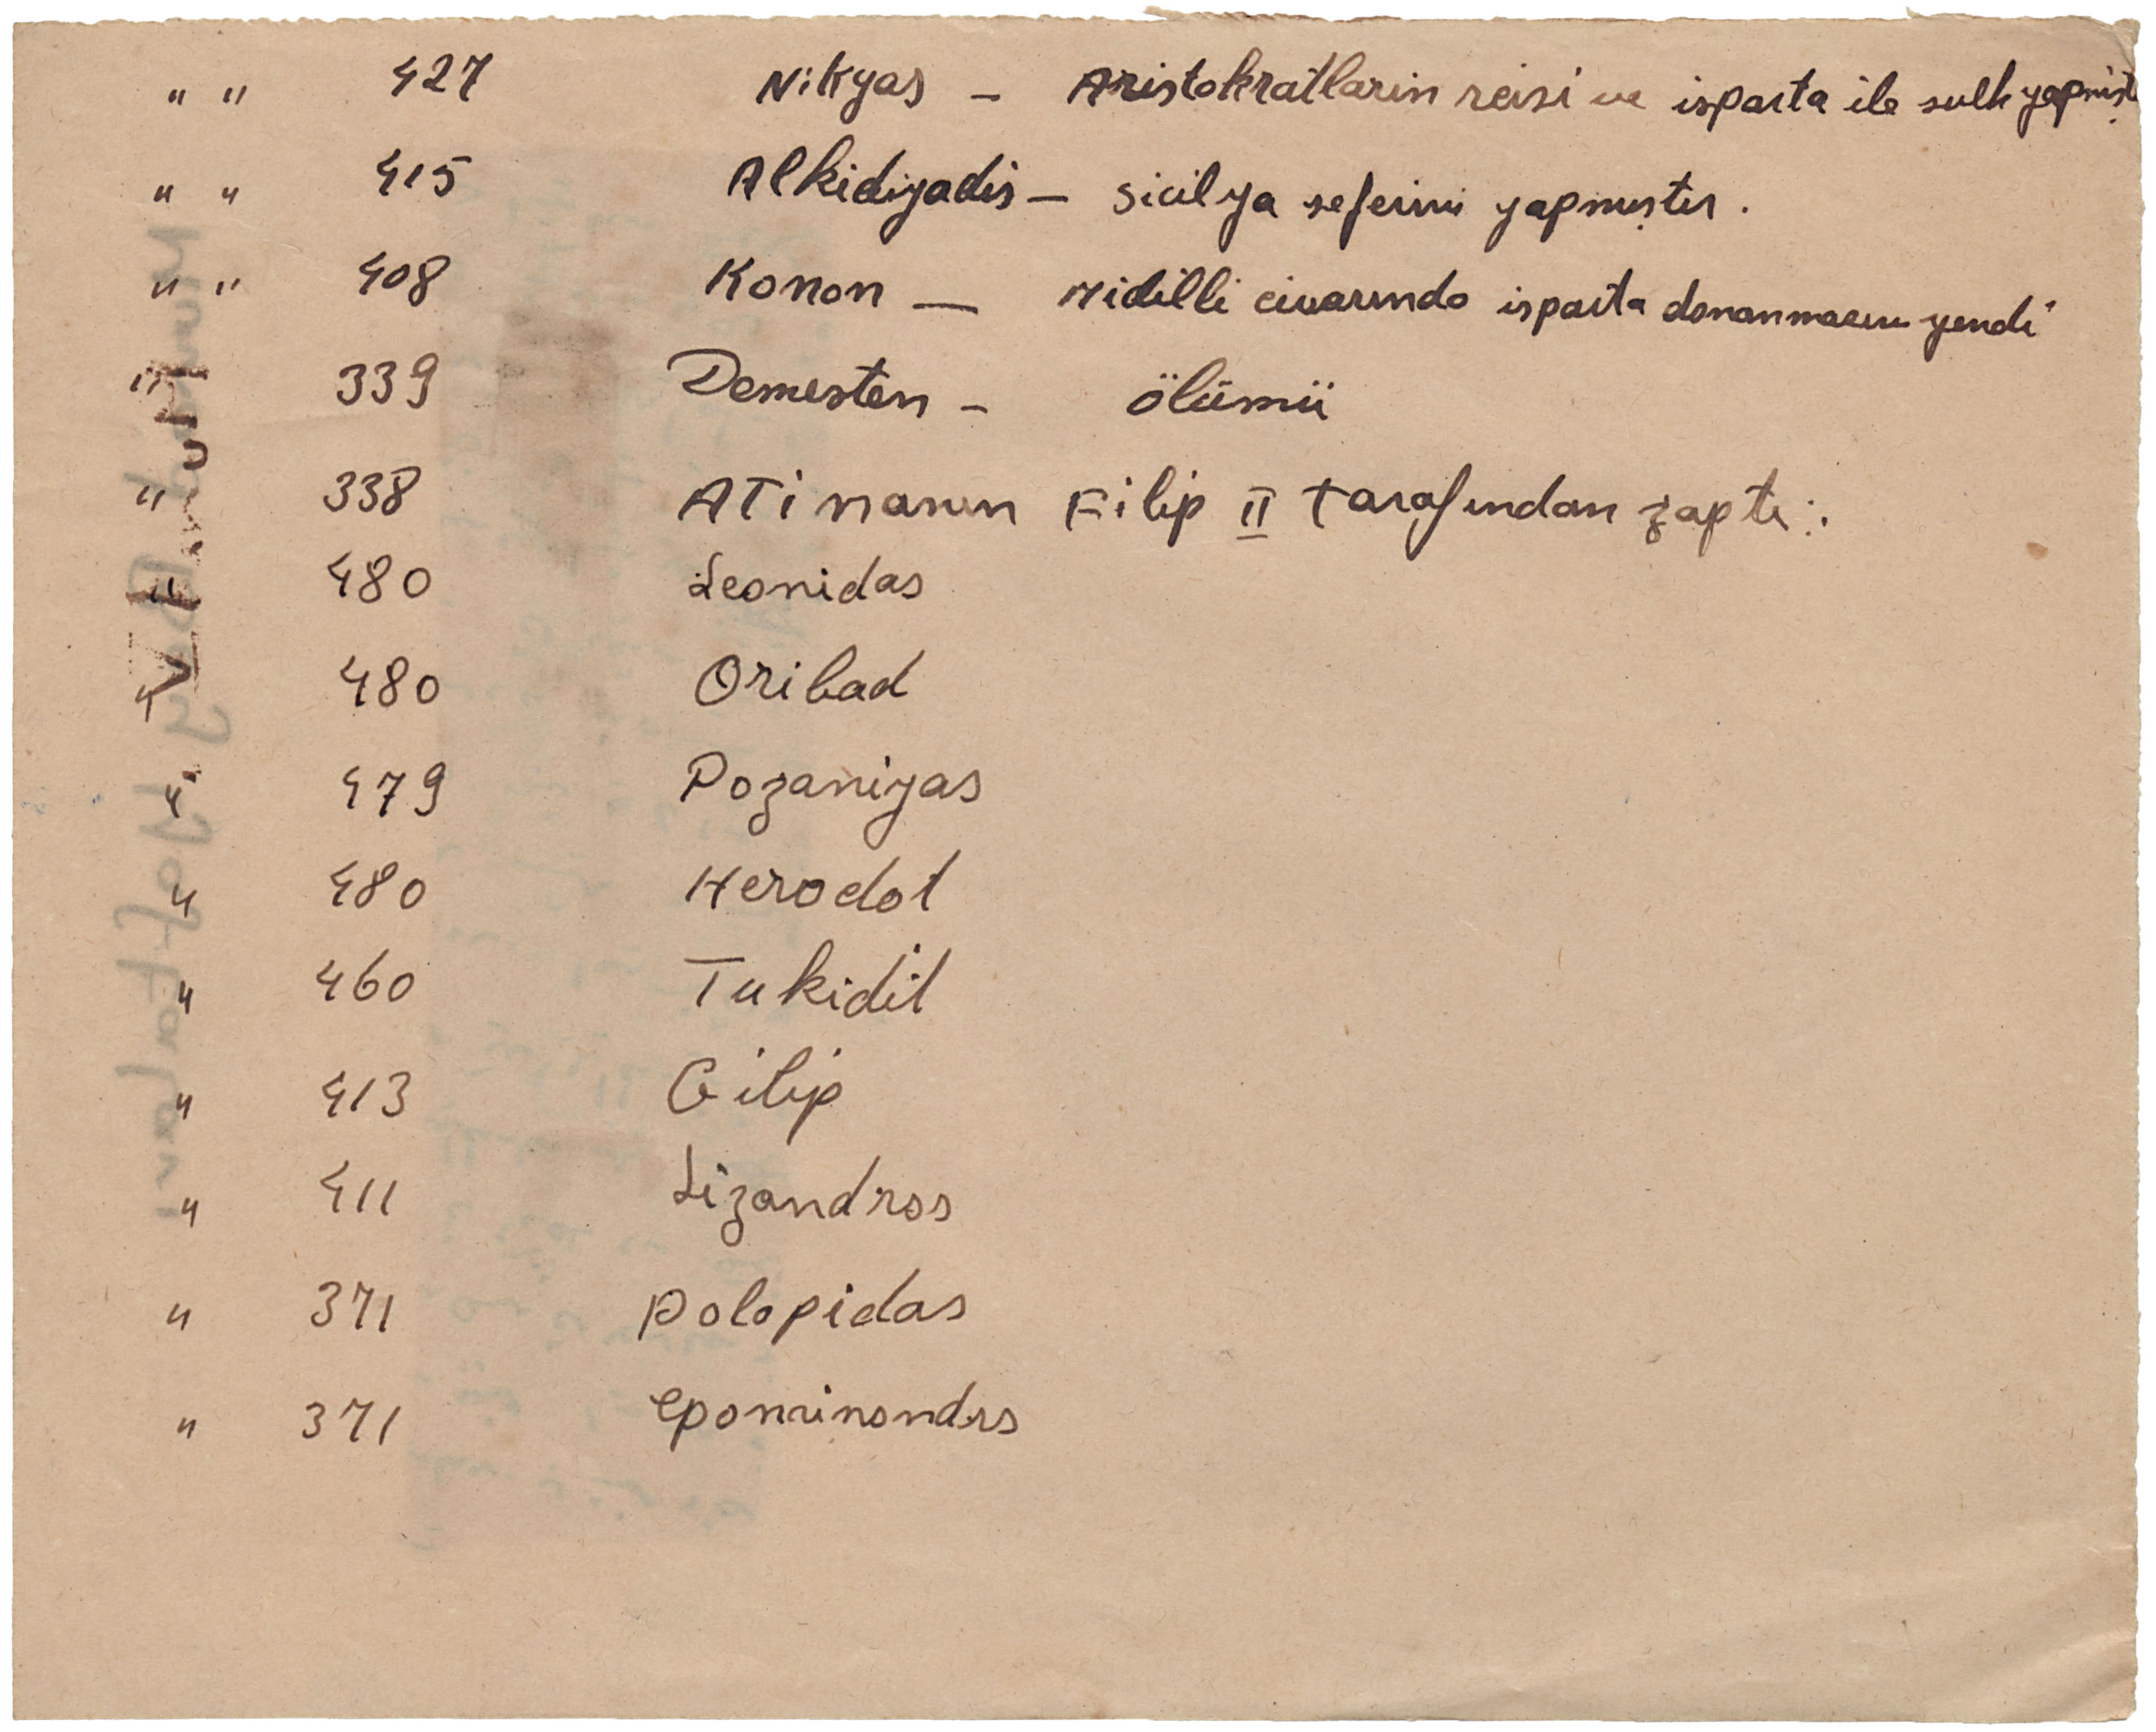 " " 427 Nikyas - Aristokratların reisi ve isparta ile sulh yapmışt
" " 415 Alkidiyadis - Sicilya seferini yapmıştır.
" " 408 Konon - Midilli civarında isparta donanmasını yendi
" 339 Demesten - ölümü
" 338 ATinanın Filip II tarafından zaptı.
" 480 Leonidas
" 480 Oribad
" 479 Pozaniyas
" 480 Herodot
" 460 Tukidit
" 413 Gilip
" 411 Lizandros
" 371 Polopidas
" 371 Epominondas